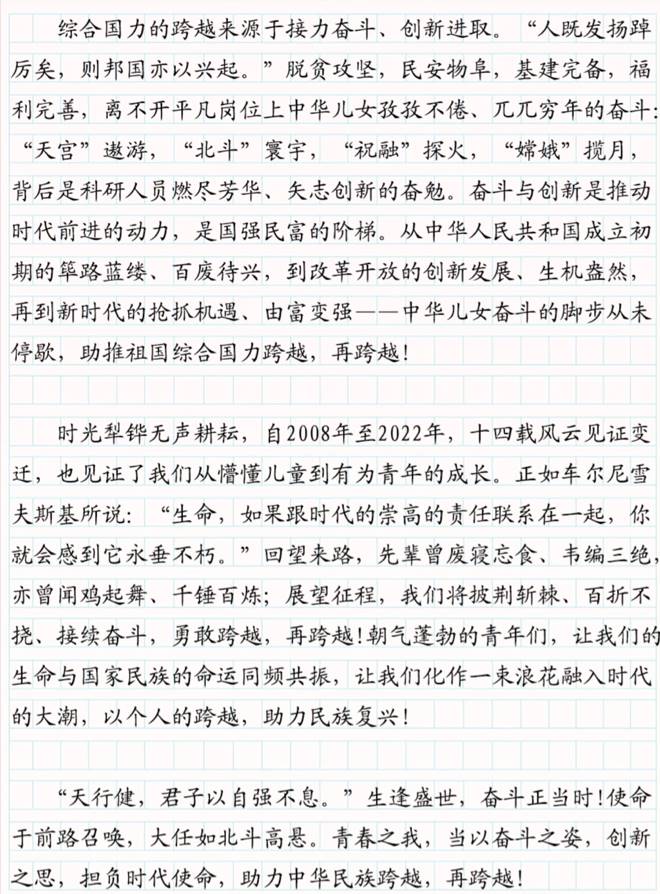 综合国力的跨越来源于接力奋斗、创新进取。“人既发扬踔
厉矣，则邦国亦以兴起。”脱贫攻坚，民安物阜，基建完备，福
利完善，离不开平凡岗位上中华儿女孜孜不倦、兀兀穷年的奋斗；
“天宫”遨游，“北斗”寰宇，“祝融”探火，“嫦娥”揽月，
背后是科研人员燃尽芳华、矢志创新的奋勉。奋斗与创新是推动
时代前进的动力，是国强民富的阶梯。从中华人民共和国成立初
期的筚路蓝缕、百废待兴，到改革开放的创新发展、生机盎然，
再到新时代的抢抓机遇、由富变强——中华儿女奋斗的脚步从未
停歇，助推祖国综合国力跨越，再跨越！
时光犁铧无声耕耘，自2008年至2022年，十四载风云见证变
迁，也见证了我们从懵懂儿童到有为青年的成长。正如车尔尼雪
夫斯基所说：“生命，如果跟时代的崇高的责任联系在一起，你
就会感到它永垂不朽。”回望来路，先辈曾废寝忘食、韦编三绝，
亦曾闻鸡起舞、千锤百炼；展望征程，我们将披荆斩棘、百折不
挠、接续奋斗，勇敢跨越，再跨越！朝气蓬勃的青年们，让我们的
生命与国家民族的命运同频共振，让我们化作一束浪花融入时代
的大潮，以个人的跨越，助力民族复兴！
“天行健，君子以自强不息。”生逢盛世，奋斗正当时！使命
于前路召唤，大任如北斗高悬。青春之我，当以奋斗之姿，创新
之思，担负时代使命，助力中华民族跨越，再跨越！